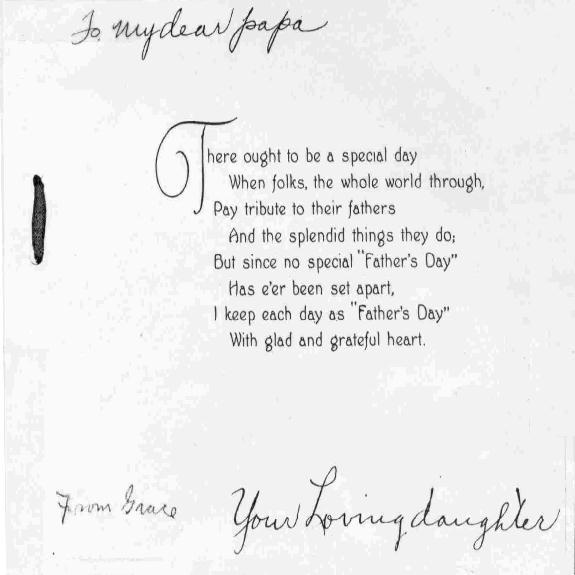 To my dear papa
There ought to be a special day
When folks, the whole world through,
Pay tribute to their fathers
And the splendid things they do;
But since no special "Father's Day"
Has e'er been set apart,
I keep each day as "Father's Day"
With glad and grateful heart.
From Grace
Your Loving daughter